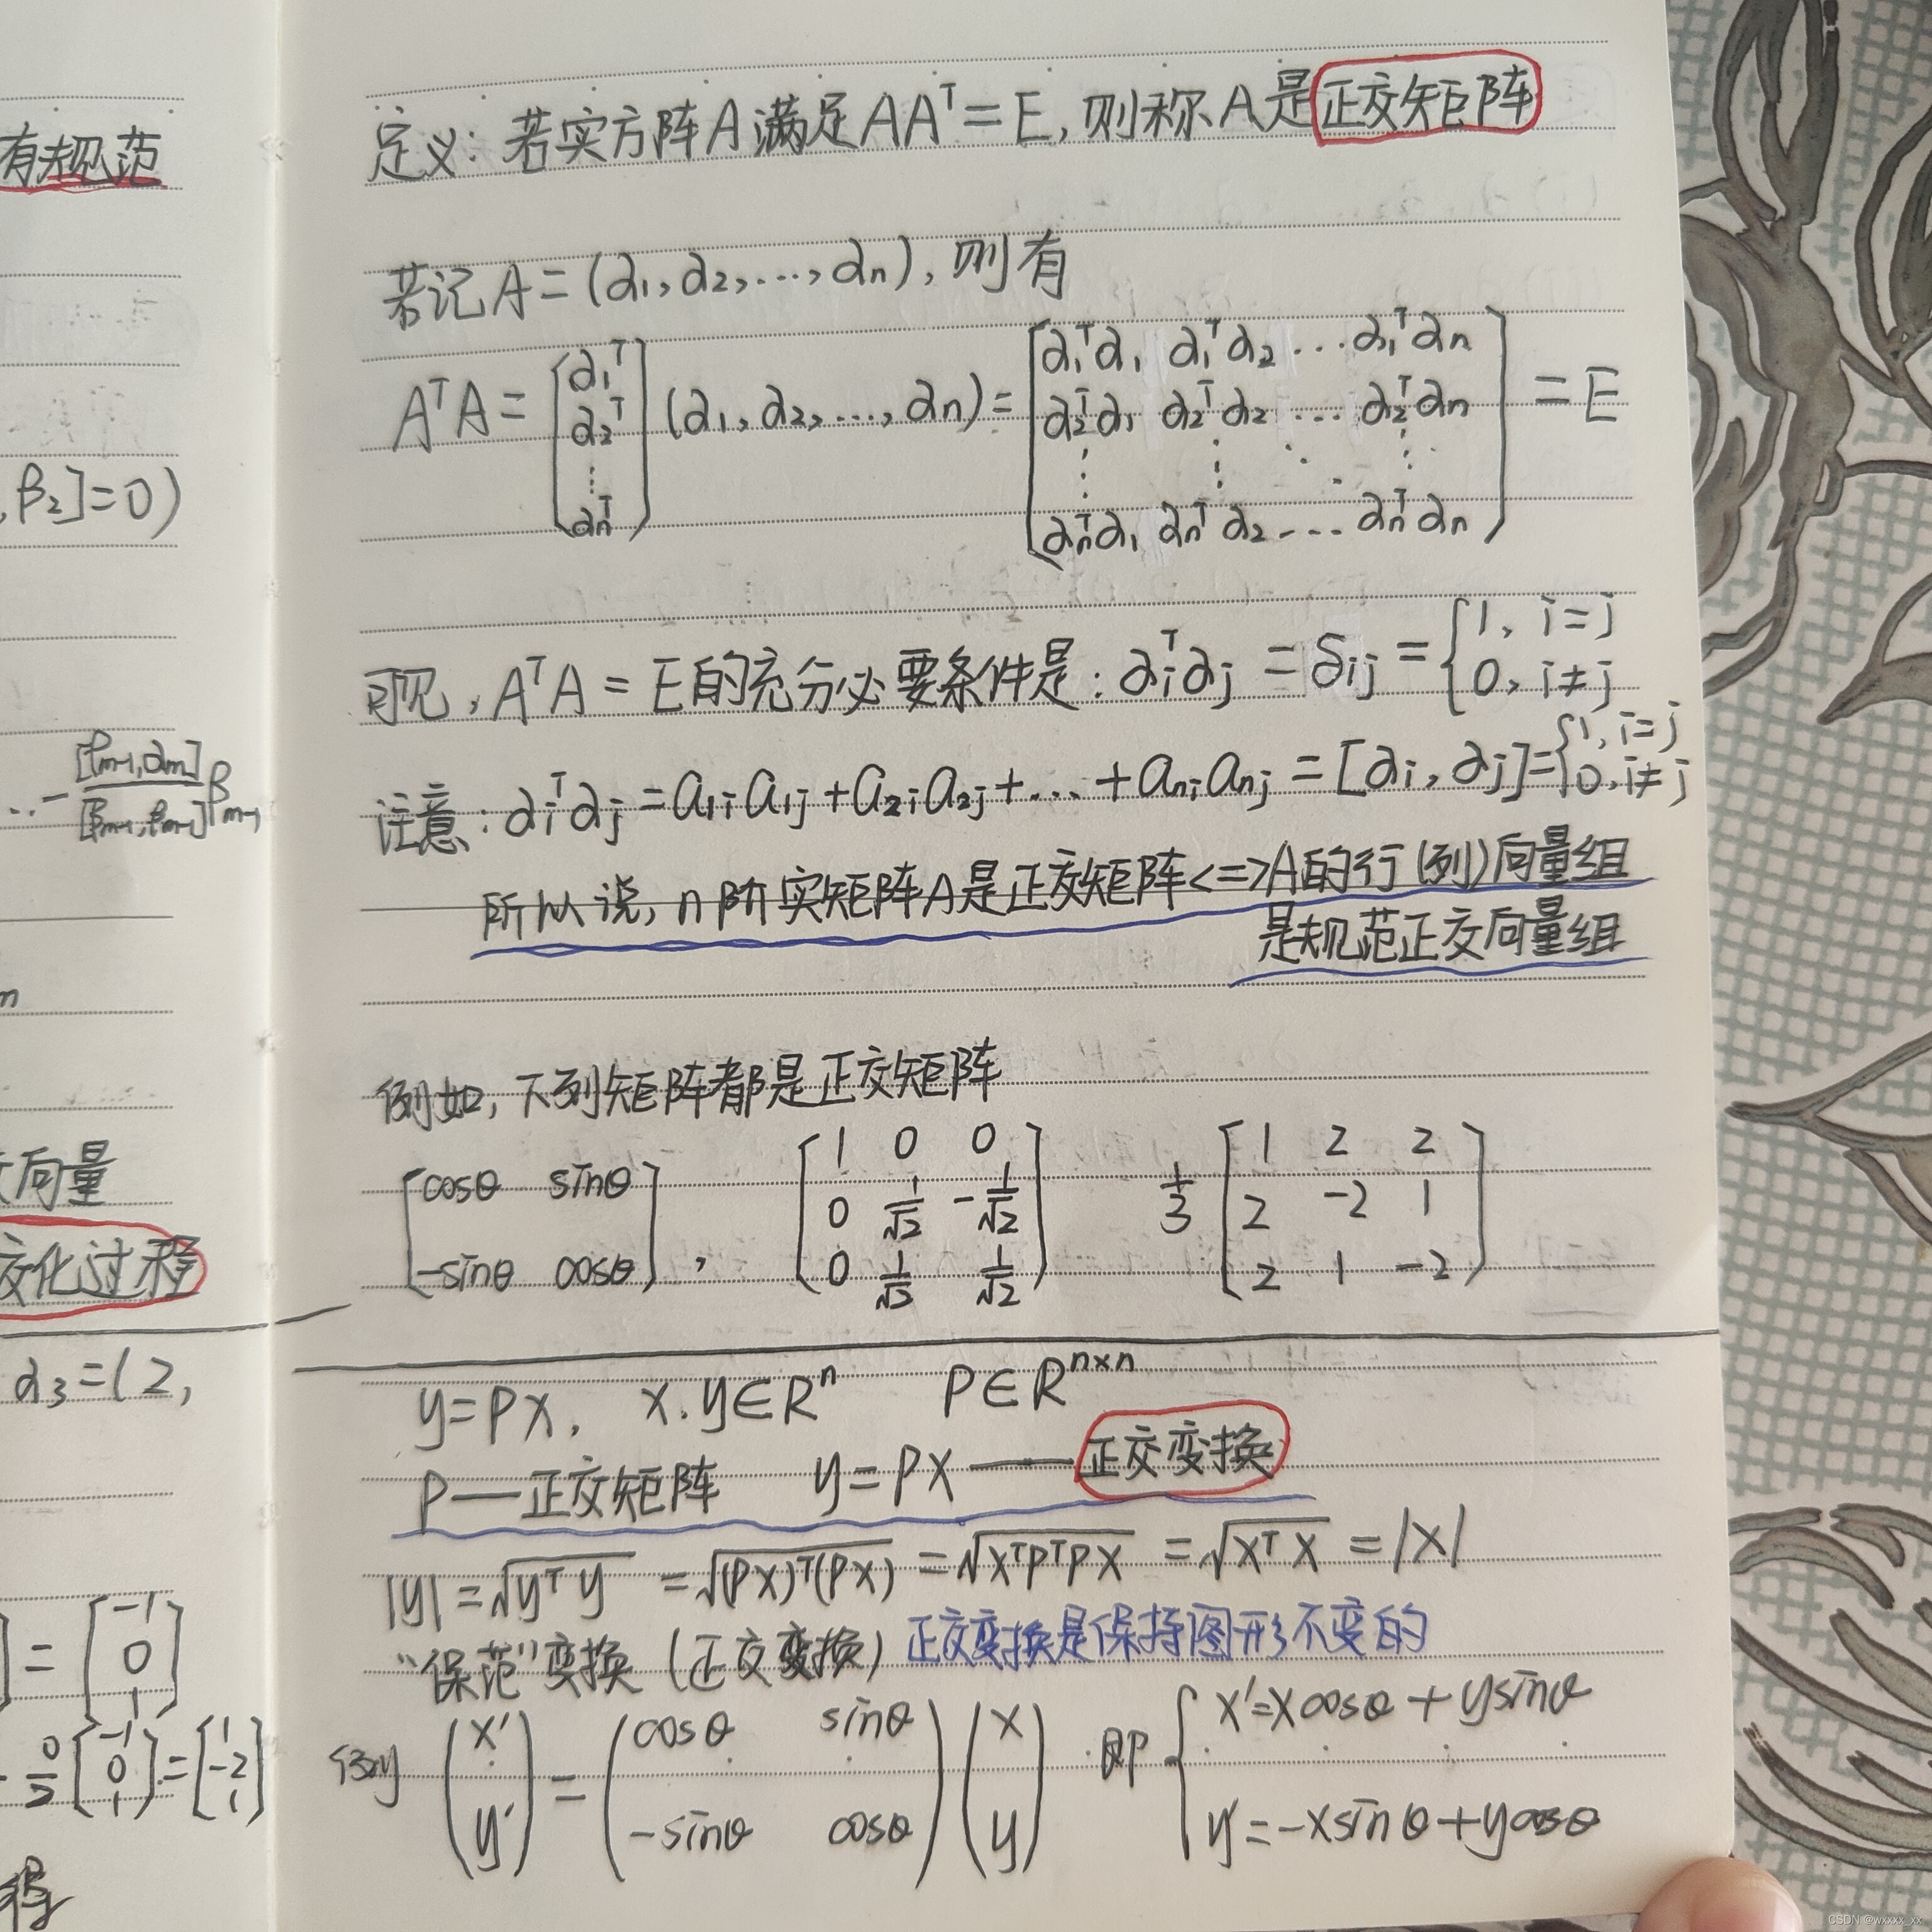 有规范
, β₂]=0)
..-[βm-1,αm]/[βm-1,βm-1]βm-1
n
向量
交化过程
α₃=(2,
]=[-1 0 1]
-0/2[-1 0 1]=[1 -2 1]
得
定义: 若实方阵A满足AAᵀ=E, 则称A是正交矩阵
若记A=(α₁,α₂,…,αn), 则有
AᵀA=[α₁ᵀ α₂ᵀ ⋮ αnᵀ](α₁,α₂,…,αn)=[α₁ᵀα₁ α₁ᵀα₂ … α₁ᵀαn; α₂ᵀα₁ α₂ᵀα₂ … α₂ᵀαn; ⋮ ⋮ ⋱ ⋮; αnᵀα₁ αnᵀα₂ … αnᵀαn]=E
可见, AᵀA=E的充分必要条件是: αiᵀαj=δij={1, i=j; 0, i≠j
注意: αiᵀαj=a1ia1j+a2ia2j+…+anianj=[αi, αj]={1, i=j; 0, i≠j
所以说, n阶实矩阵A是正交矩阵<=>A的行(列)向量组
是规范正交向量组
例如, 下列矩阵都是正交矩阵
[cosθ sinθ; -sinθ cosθ], [1 0 0; 0 1/√2 -1/√2; 0 1/√2 1/√2] 1/3[1 2 2; 2 -2 1; 2 1 -2]
y=PX, X.y∈Rⁿ P∈Rⁿˣⁿ
P—正交矩阵 y=PX——正交变换
|y|=√(yᵀy)=√((PX)ᵀ(PX))=√(XᵀPᵀPX)=√(XᵀX)=|X|
"保范"变换(正交变换) 正交变换是保持图形不变的
例 (x' y')=(cosθ sinθ; -sinθ cosθ)(x y) 即{x'=xcosθ+ysinθ; y'=-xsinθ+ycosθ
CSDN @wxxxx_xx